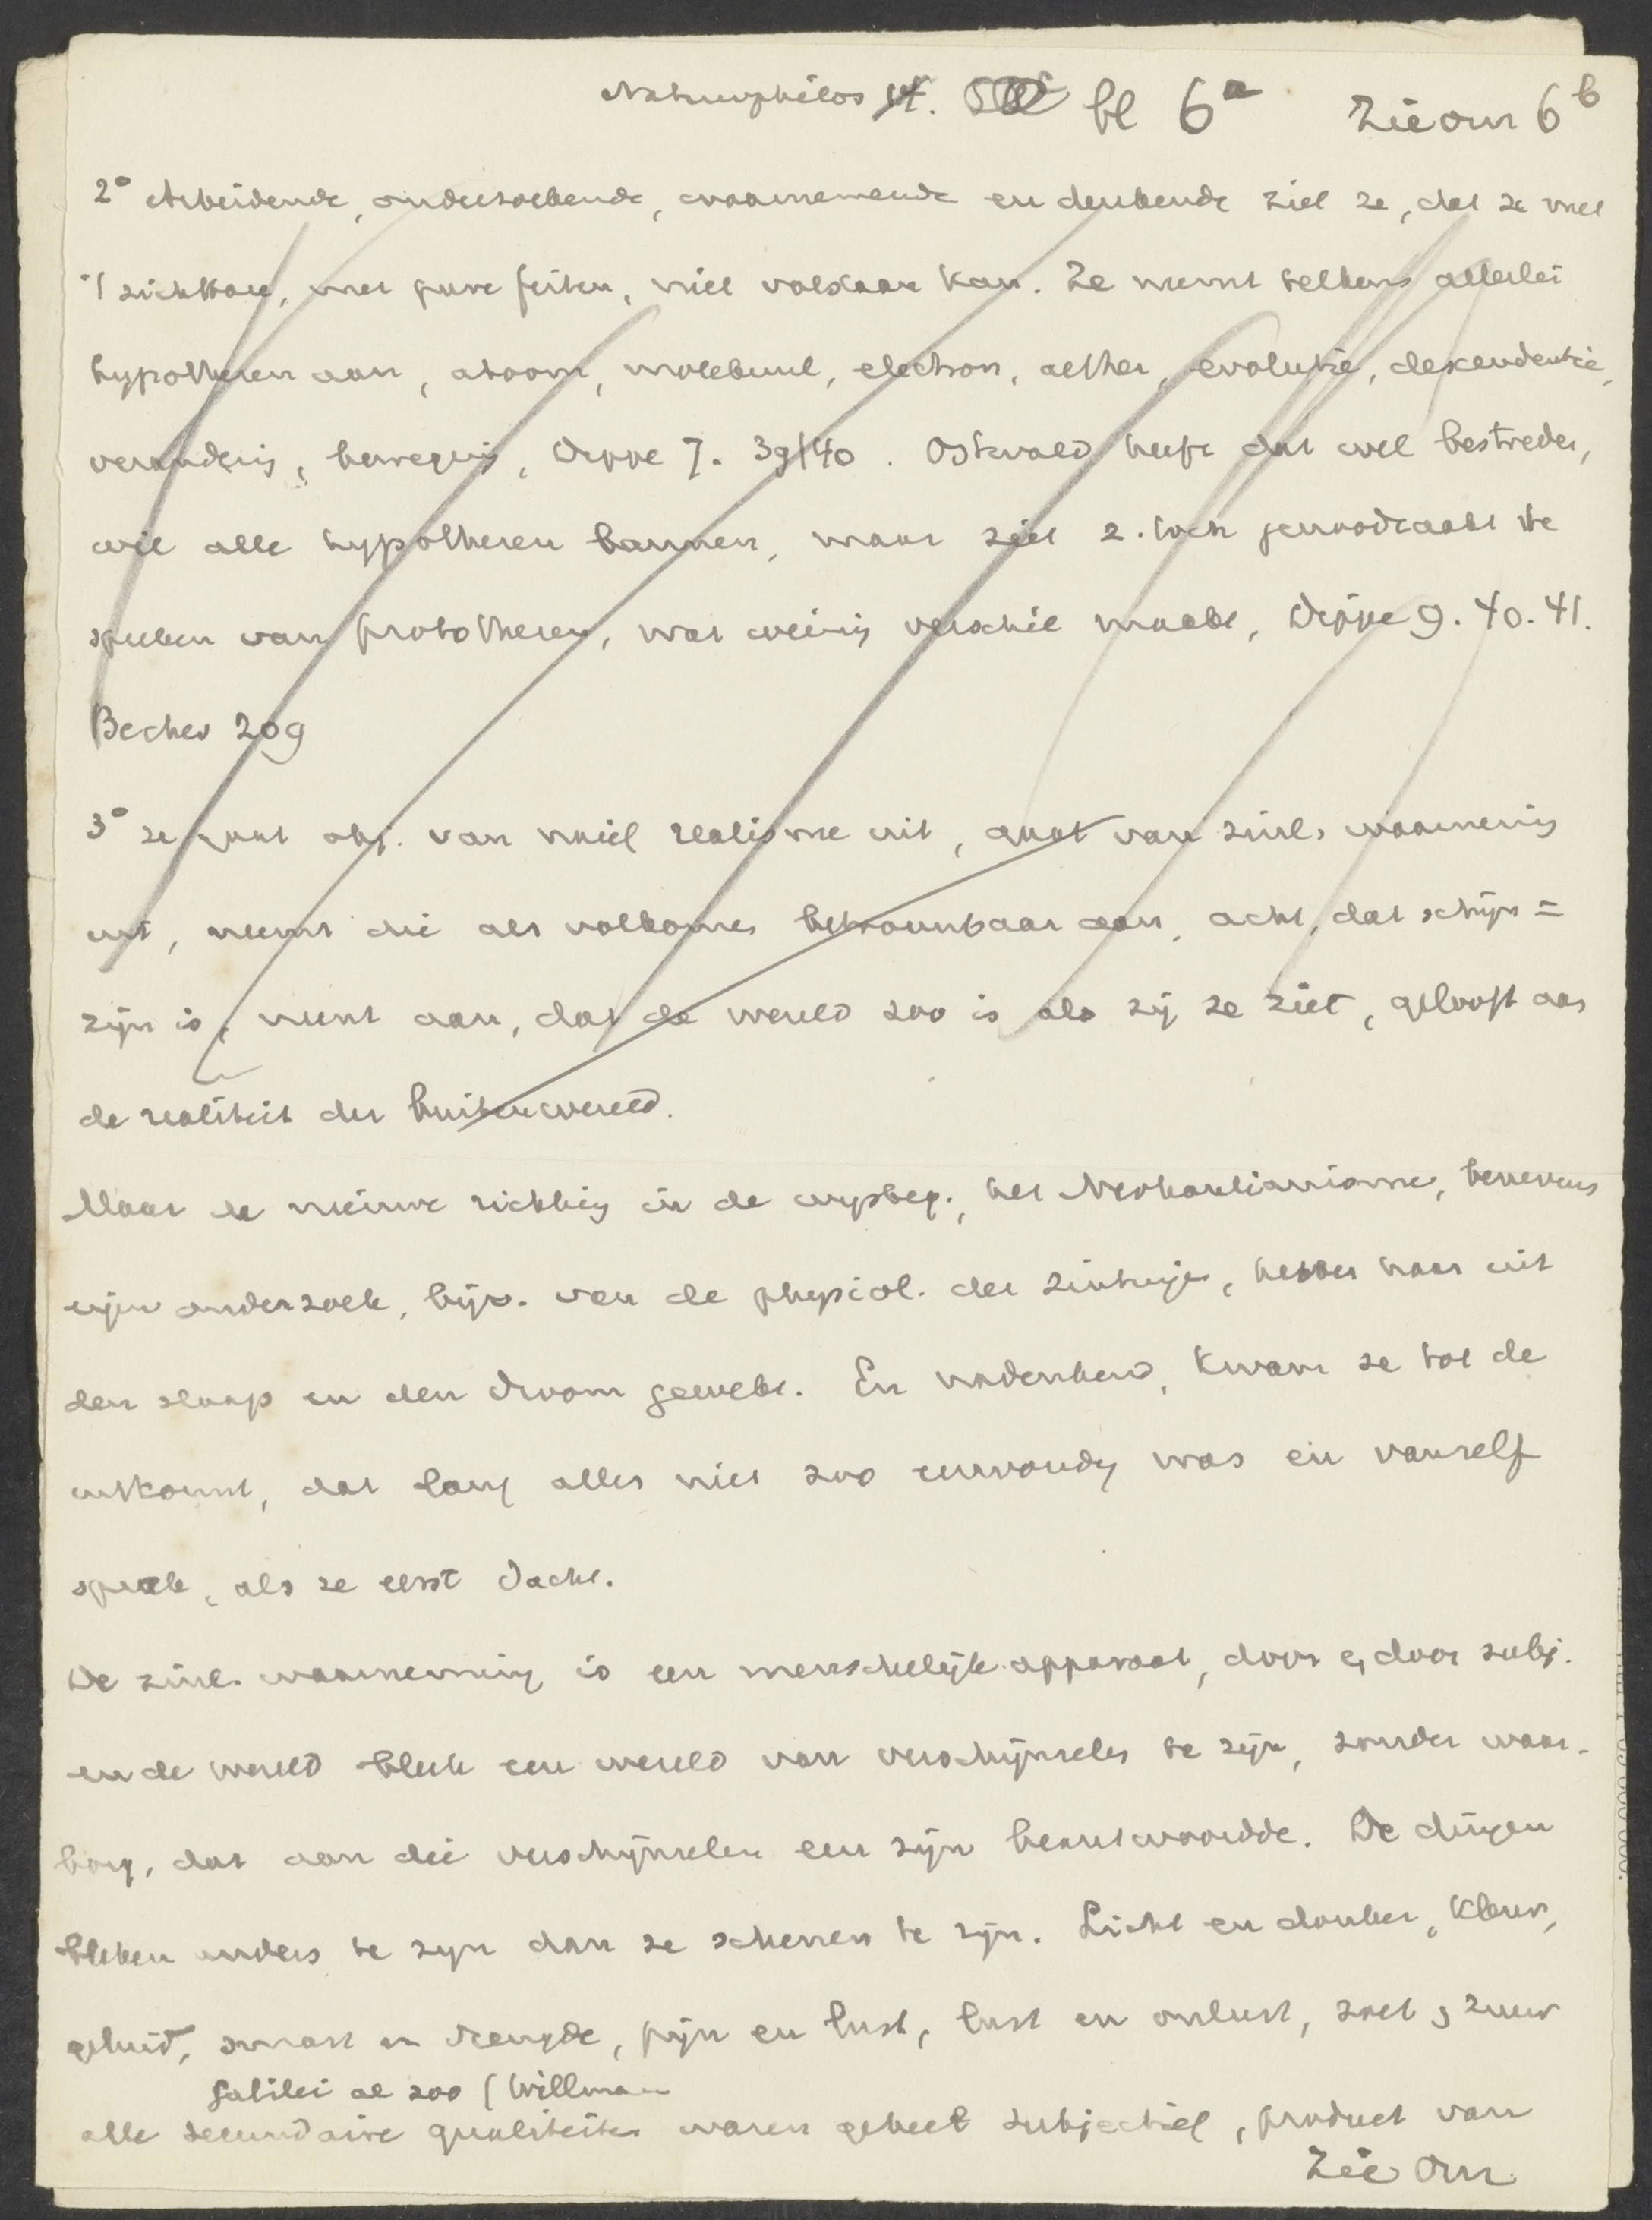 Naturphilos 14. bl 6a Zie om 6b
2° Arbeidende, onderzoekende, waarnemende en denkende ziet ze, dat ze met
't zichtbare, met pure feiten, niet volstaan kan. Ze neemt telkens allerlei
hypothesen aan, atoom, molekuul, electron, aether, evolutie, descendentie,
verandering, beweging, Dippe 7. 39/40. Ostwald heeft dat wel bestreden,
wil alle hypothesen bannen, maar ziet z. toch genoodzaakt te
spreken van protothesen, wat weinig verschil maakt, Dippe 9. 40. 41.
Becher 209
3° ze gaat obj. van naief realisme uit, gaat van zinl. waarneming
uit, neemt die als volkomen betrouwbaar aan, acht, dat schijn =
zijn is, neemt aan, dat de wereld zoo is als zij ze ziet, gelooft aan
de realiteit der buitenwereld.
Maar de nieuwe richting in de wijsbeg., het Neokantianisme, benevens
eigen onderzoek, bijv. van de physiol. der zintuigen, hebben haar uit
den slaap en den droom gewekt. En nadenkend, kwam ze tot de
uitkomst, dat lang alles niet zoo eenvoudig was en vanzelf
sprak, als ze eerst dacht.
De zinl. waarneming is een menschelijk apparaat, door en door subj.
en de wereld bleek een wereld van verschijnselen te zijn, zonder waar-
borg, dat aan die verschijnselen een zijn beantwoordde. De dingen
bleken anders te zijn dan ze schenen te zijn. Licht en donker, kleur,
geluid, smart en vreugde, pijn en lust, lust en onlust, zoet en zuur
Galilei al zoo (Willmann
alle secundaire qualiteiten waren geheel subjectief, product van
Zie om